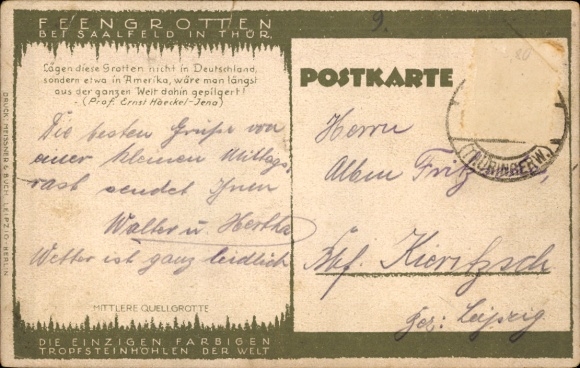 FEENGROTTEN
BEI SAALFELD IN THÜR.
Lägen diese Grotten nicht in Deutschland,
sondern etwa in Amerika, wäre man längst
aus der ganzen Welt dohin gepilgert!
- (Prof. Ernst Haeckel-Jena)
Die besten Grüße von
einer kleinen Mittags
rast sendet Ihnen
Walter u. Hertha
Wetter ist ganz leidlich
MITTLERE QUELLGROTTE
DIE EINZIGEN FARBIGEN
TROPFSTEINHÖHLEN DER WELT
DRUCK: MEISSNER & BUCH, LEIPZIG-BERLIN
9.
POSTKARTE
(THÜRINGERW.)
Herrn
Alben Fritz
Bhf. Kieritzsch
Bez: Leipzig